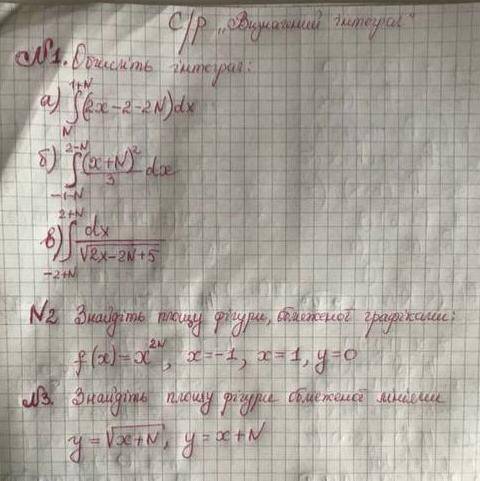 С/р „Визначений інтеграл"
№1. Обчисліть інтеграл:
а) ∫_{N}^{1+N} (2x-2-2N)dx
б) ∫_{-1-N}^{2-N} \frac{(x+N)^2}{3} dx
в) ∫_{-2+N}^{2+N} \frac{dx}{\sqrt{2x-2N+5}}
N2 Знайдіть площу фігури, обмеженої графіками:
f(x)=x^{2N}, x=-1, x=1, y=0
№3. Знайдіть площу фігури обмеженої лініями
y=\sqrt{x+N}, y=x+N